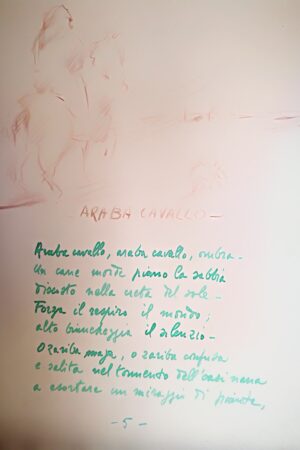 - ARABA CAVALLO -
Araba cavallo, araba cavallo, ombra -
Un cane morde piano la sabbia
nella creta del sole -
Forza il respiro il mondo;
alto biancheggia il silenzio -
O zariba maga, o zariba confusa
e salita nel tormento dell'oasi nana
a esortare un miraggio di pianeta,
- 5 -